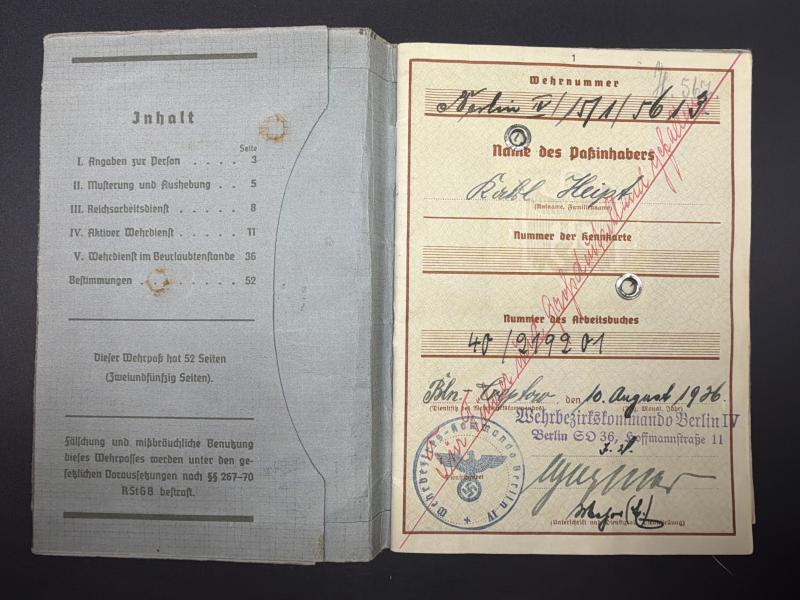 Inhalt
Seite
I. Angaben zur Person . . . . 3
II. Musterung und Aushebung . . 5
III. Reichsarbeitsdienst . . . . . 8
IV. Aktiver Wehrdienst . . . . . 11
V. Wehrdienst im Beurlaubtenstande 36
Bestimmungen . . . . . . . . 52
Dieser Wehrpaß hat 52 Seiten
(Zweiundfünfzig Seiten).
Fälschung und mißbräuchliche Benutzung
dieses Wehrpasses werden unter den ge-
setzlichen Voraussetzungen nach §§ 267–70
RStGB bestraft.
1
Wehrnummer
Berlin IV/15/1/56 13.
Name des Paßinhabers
Heipt
(Rufname, Familienname)
Nummer der Kennkarte
Nummer des Arbeitsbuches
40/219201
Bln-Treptow, den 10. August 1936
(Tag, Monat, Jahr)
Wehrbezirkskommando Berlin IV
Berlin SO 36, Hoffmannstraße 11
Wehrbezirks-Kommando Berlin IV
Major (E)
für Großdeutschland gefallen